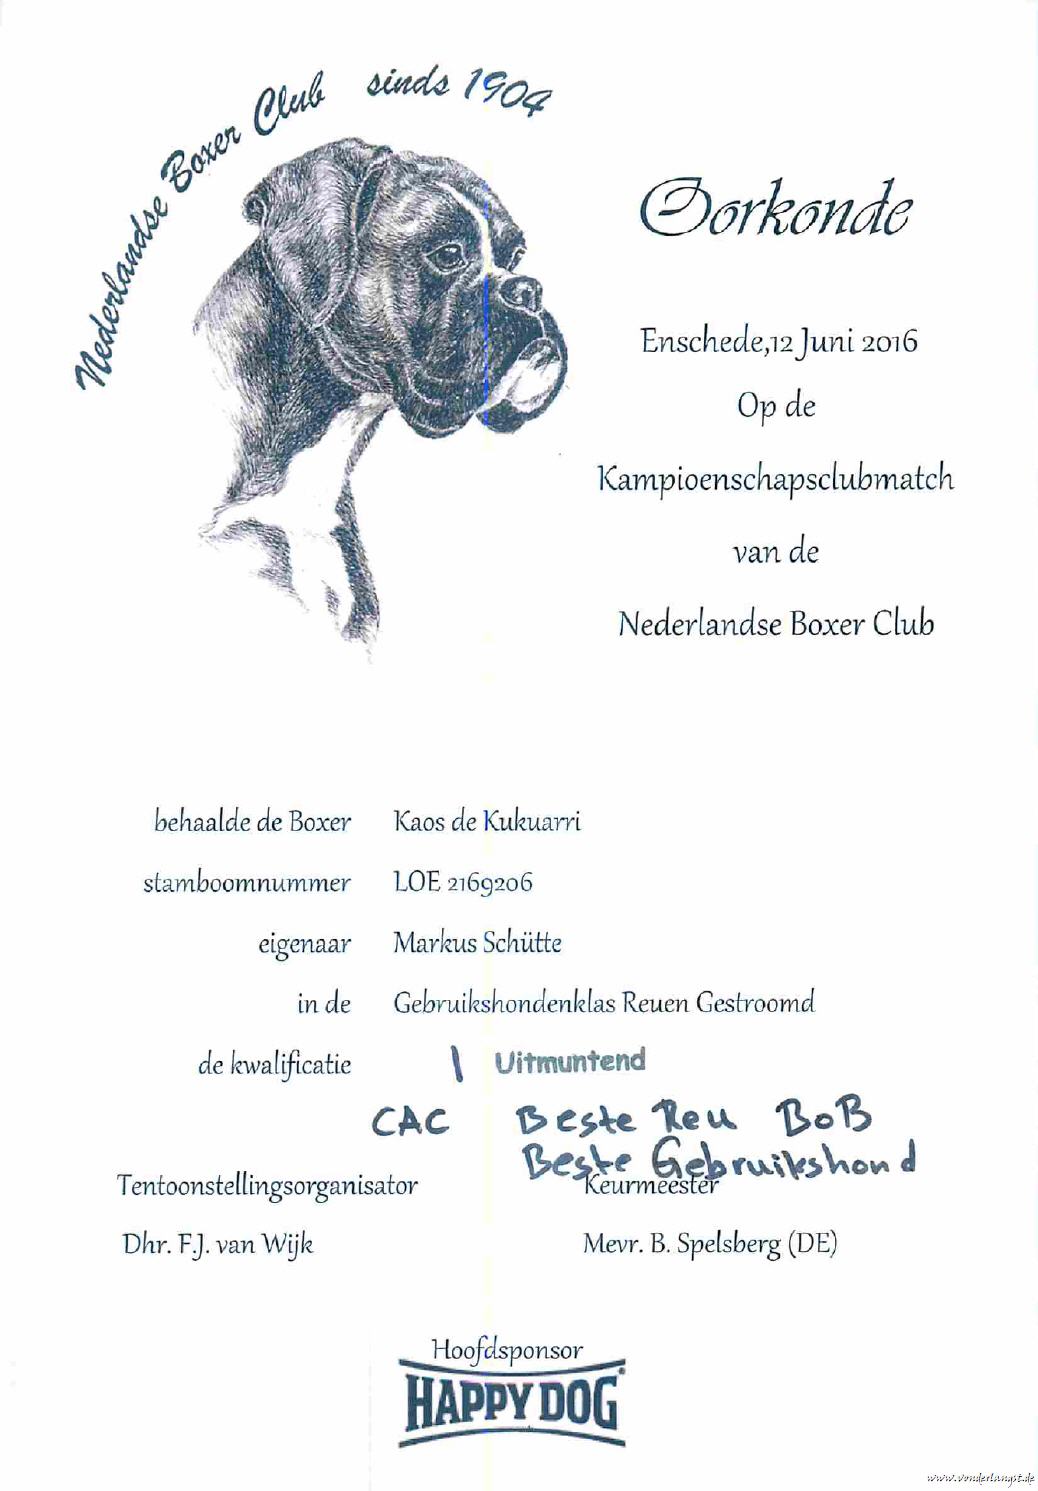 Nederlandse Boxer Club sinds 1904
Oorkonde
Enschede,12 Juni 2016
Op de
Kampioenschapsclubmatch
van de
Nederlandse Boxer Club
behaalde de Boxer Kaos de Kukuarri
stamboomnummer LOE 2169206
eigenaar Markus Schütte
in de Gebruikshondenklas Reuen Gestroomd
de kwalificatie 1 Uitmuntend
CAC Beste Reu BoB
Beste Gebruikshond
Tentoonstellingsorganisator Keurmeester
Dhr. F.J. van Wijk Mevr. B. Spelsberg (DE)
Hoofdsponsor
HAPPY DOG
www.vonderlangst.de